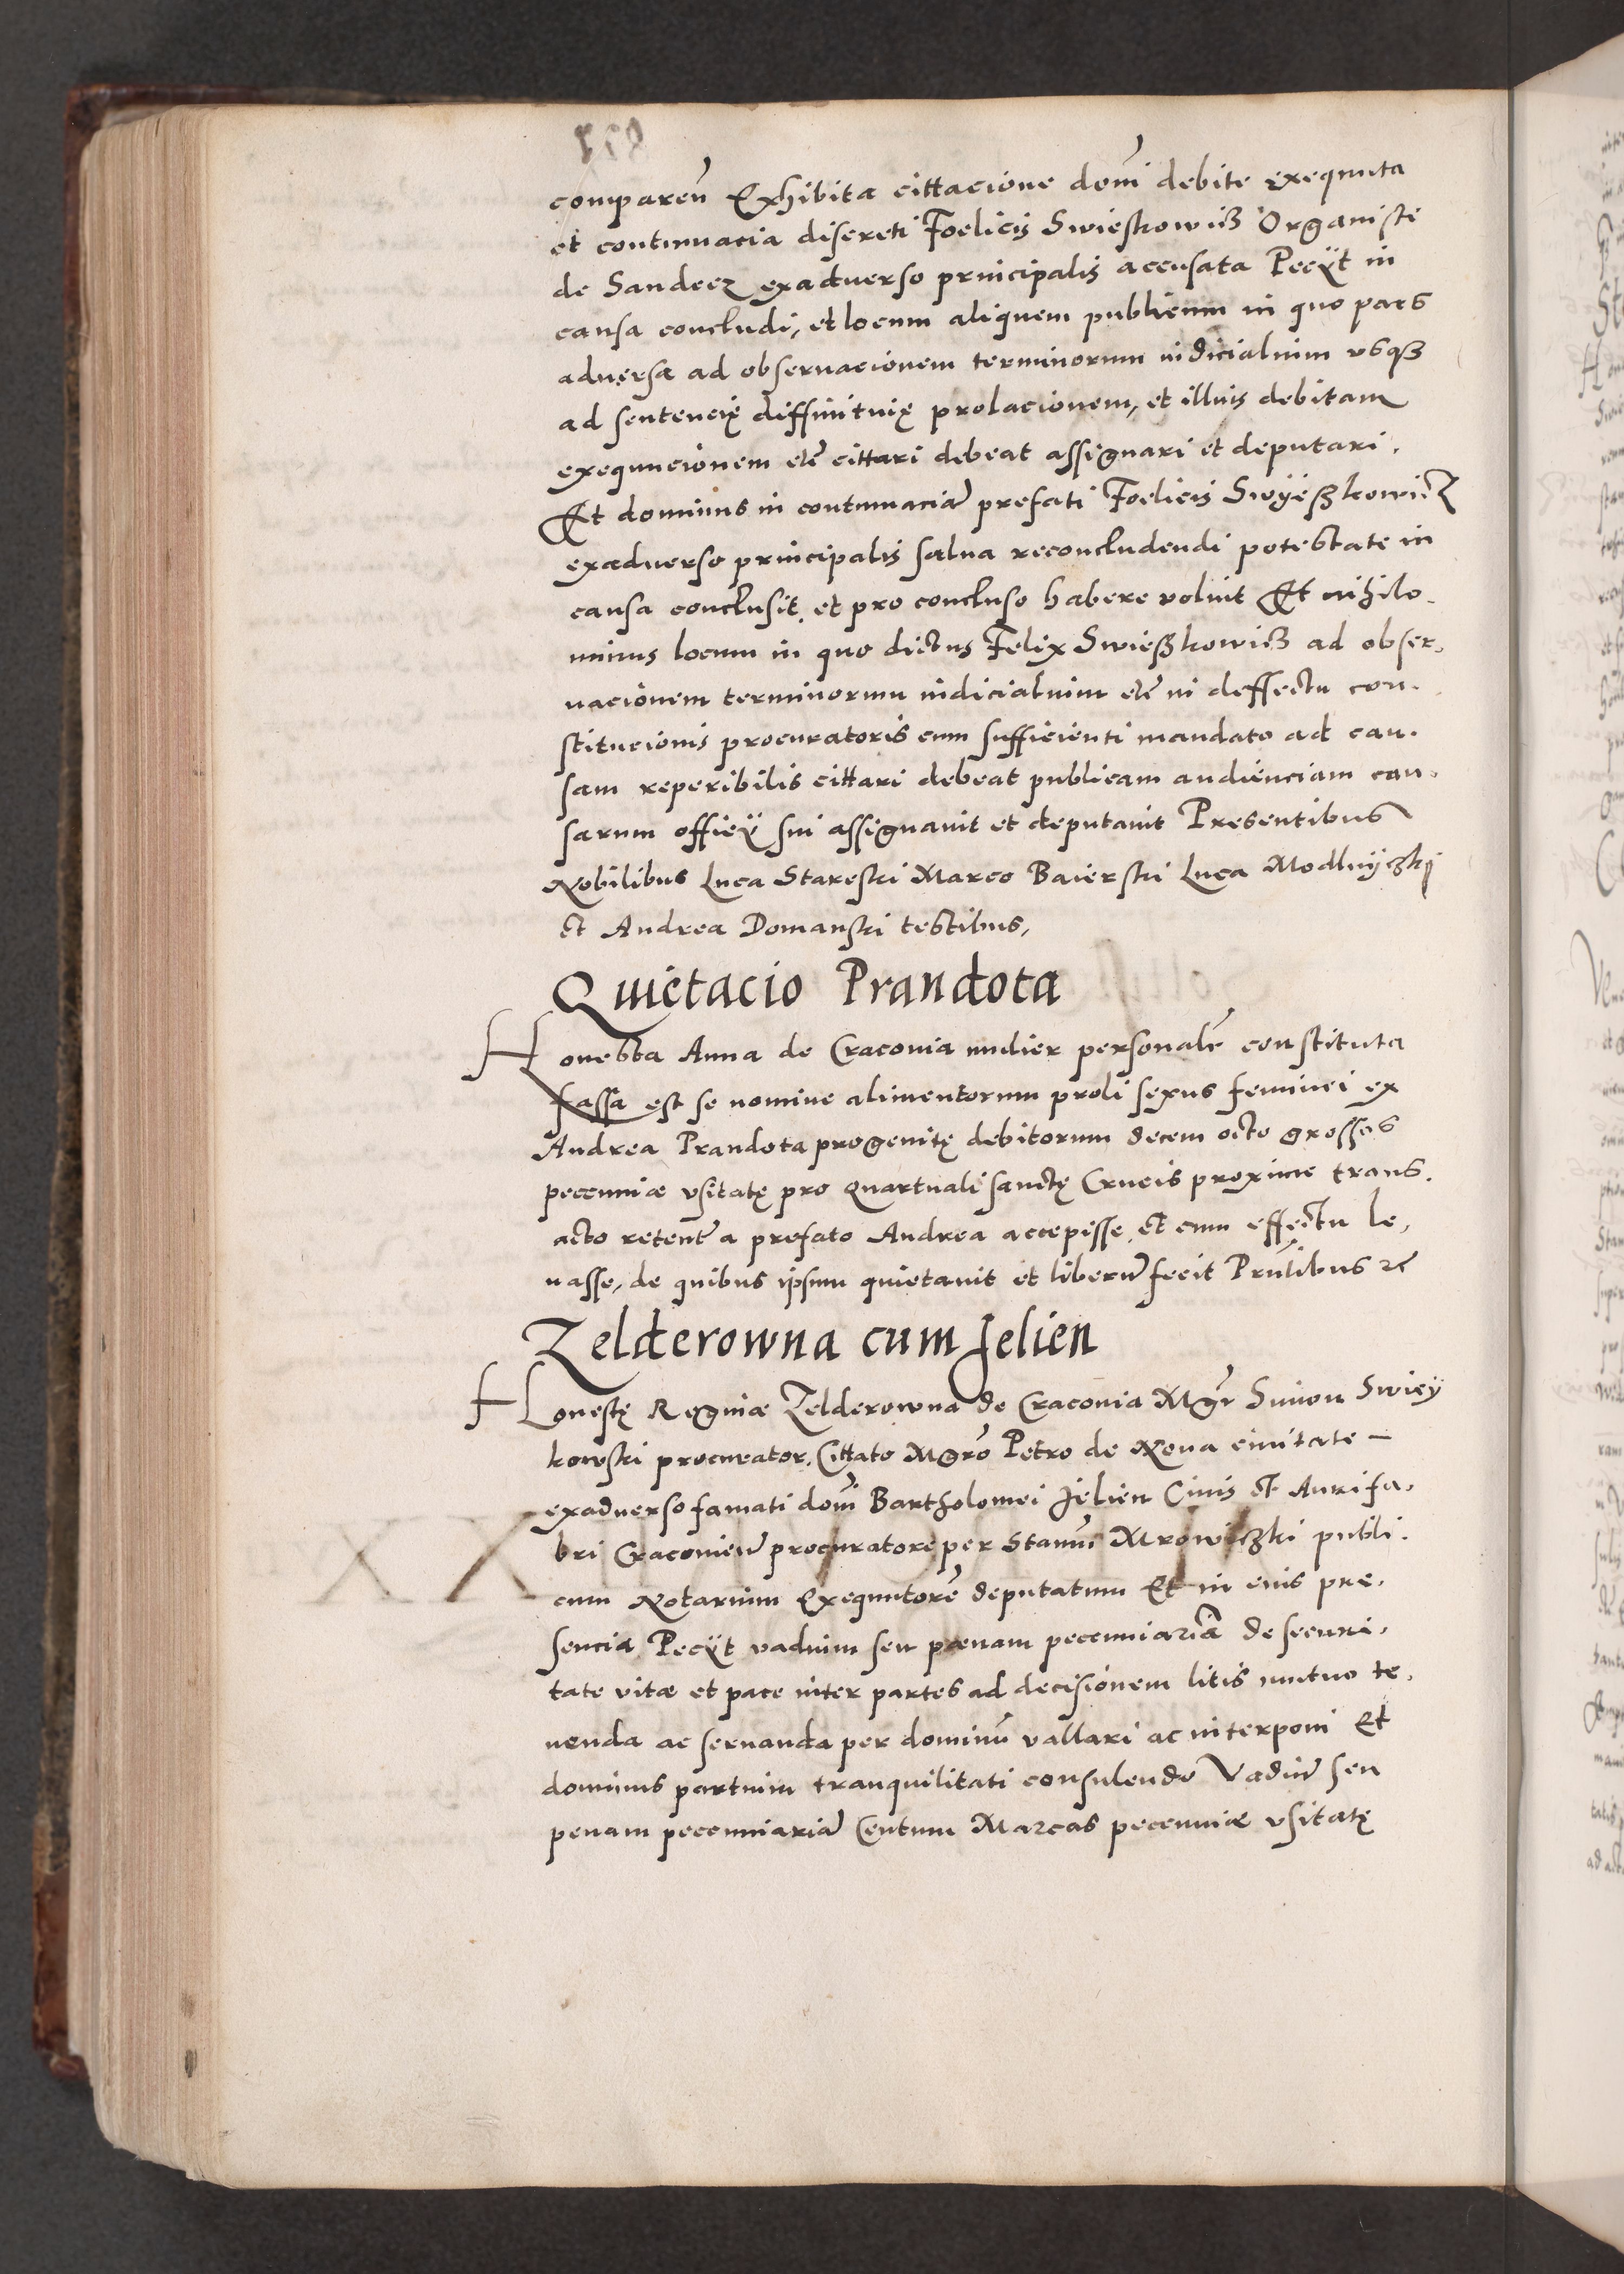 comparen̄ Exhibita cittacione domi̅ debite exequuta
et contumacia discreti Foelicis Swieskowicz Organiste
de Sandecz exaduerso principalis accusata Pecÿt in
causa concludi, et locum aliquem publicum in quo pars
aduersa ad obseruacionem terminorum iudicialium vsqȝ
ad sentencię diffinitiuę prolacionem, et illius debitam
exequucionem etc̄ cittari debeat assignari et deputari.
Et dominus in contumaciam̄ prefati Foelicis Swyeszkowicz
exaduerso principalis salua reconcludendi potestate in
causa conclusit, et pro concluso habere voluit Et nihilo-
minus locum in quo dictus Felix Swieszkowicz ad obser-
uacionem terminorum iudicialium etc̄ in deffectu con-
stitucionis procuratoris cum sufficienti mandato ad cau-
sam reperibilis cittari debeat publicam audienciam cau-
sarum officÿ sui assignauit et deputauit Presentibus
Nobilibus Luca Stareski Marco Baierski Luca Modlnÿczkÿ
et Andrea Domanski testibus,
Quietacio Prandota
Honesta Anna de Craconia mulier personalr̄ constituta
fassa est se nomine alimentorum proli sexus feminei ex
Andrea Prandota progenitę debitorum decem octo grossos
pecuniæ vsitatę pro quartuali sanctę Crucis proxime trans-
acto retentr̄ a prefato Andrea accepisse, et cum effectu le-
uasse, de quibus ipsum quietauit et liberum̄ fecit Prn̄tibus etc̄
Zelderowna cum Jelien
Honestę Reginæ Zelderowna de Craconia Mgr̄ Simon Swiey
kowski procurator, Cittato Mgrō Petro de Noua ciuitate —
exaduerso famati domi̅ Bartholomei Jelien Ciuis et Aurifa-
bri Cracouien̄ procuratore per Stanm̄ Mrowiczki publi-
cum Notarium Exequutorē deputatum Et in eius pre-
sencia Pecÿt vadium seu pœnam pecuniariā de securi-
tate vitæ et pace inter partes ad decisionem litis mutuo te-
nenda ac seruanda per dominū vallari ac interponi Et
dominus partium tranquilitati consulendo Vadium̄ seu
penam pecuniariam̄ Centum Marcas pecuniæ vsitatę